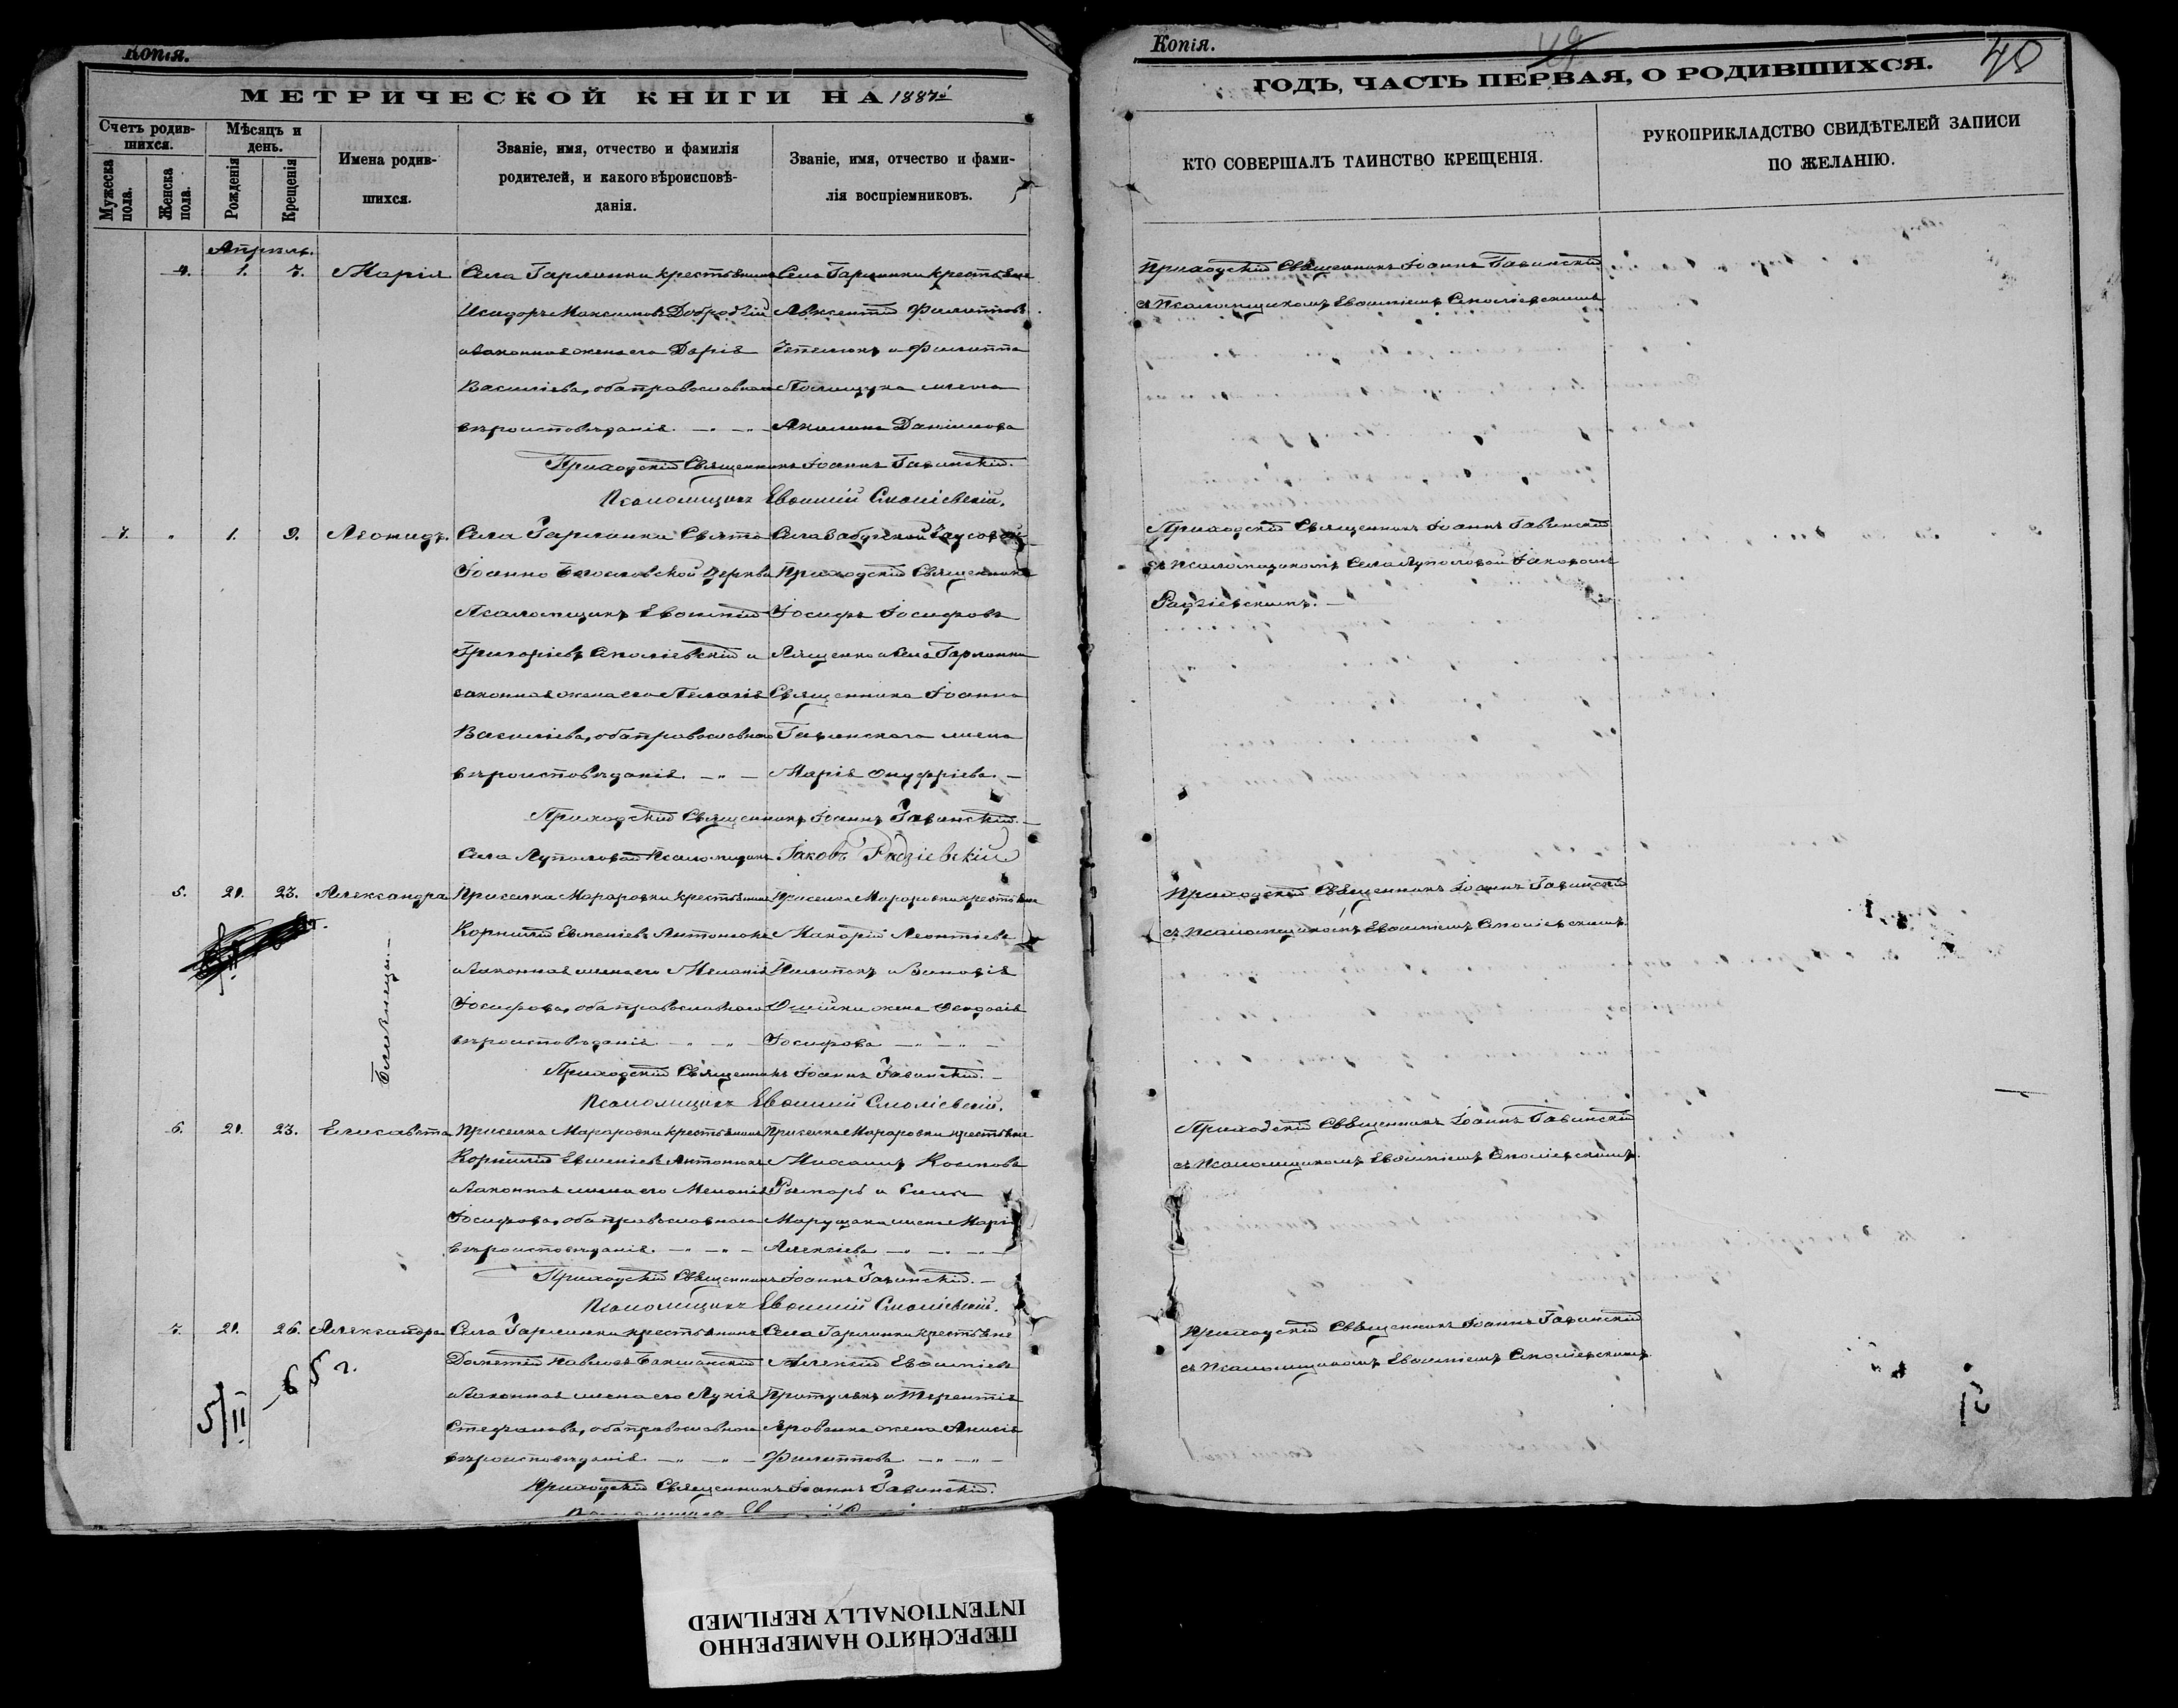 Копія.
МЕТРИЧЕСКОЙ КНИГИ НА 1887й
Счетъ родив-
шихся.
Мужеска
пола.
Женска
пола.
Мѣсяцъ и
день.
Рожденія
Крещенія
Имена родив-
шихся.
Званіе, имя, отчество и фамилія
родителей, и какого вѣроисповѣ-
данія.
Званіе, имя, отчество и фами-
лія воспріемниковъ.
Апрѣль.
4. 1. 7. Марія
Села Гарлинки крестьянинъ
Исидоръ Максимовъ Добродѣй
и законная жена его Дарія
Василіева, оба православнаго
вѣроисповѣданія. — „ —
Села Гарлинки крестьяне
Авксентій Филипповъ
и Филиппа
Полищука жена
Акилина Даніилова
Приходскій Священникъ Іоаннъ Гавинскій.
Псаломщикъ Евѳимій Смолієвскій.
7. „ 1. 9. Леонидъ.
Села Гарлинки Свято
Іоанно Богословской церкви
Псаломщикъ Евѳимій
Григоріевъ Смоліевскій и
законная жена его Пелагія
Василіева, оба православнаго
вѣроисповѣданія. — „ —
Приходскій Священникъ
Іосифъ Іосифовъ
Лященко и Села Гарлинки
Священника Іоанна
Гавинскаго жена
Марія Онуфріева. —
Приходскій Священникъ Іоаннъ Гавинскій. —
Села Луполовой Псаломщикъ Іаковъ Радзіевскій
5. 21. 23. Александра
Близнецы. —
Приселка Мараровки крестьянинъ
Корнилій Евменіевъ Антонюкъ
и законная жена его Меланія
Іосифова, оба православнаго
вѣроисповѣданія — „ — „ —
Приселка Мараровки крестьяне
Макарій Леонтіевъ
и Зиновія
жена Ѳеодосія
Іосифова — „ — „ —
Приходскій Священникъ Іоаннъ Гавинскій. —
Псаломщикъ Евѳимій Смоліевскій.
6. 21. 23. Елисавета
Приселка Мараровки крестьянинъ
Корнилій Евменіевъ Антонюкъ
и законная жена его Меланія
Іосифова, оба православнаго
вѣроисповѣданія. — „ — „ —
Приселка Мараровки крестьяне
Михаилъ Космовъ
Рымарь и
Марущака жена Марія
Алексіева — „ — „ —
Приходскій Священникъ Іоаннъ Гавинскій. —
Псаломщикъ Евѳимій Смоліевскій.
7. 21. 26. Александра
5/II - 65 г.
Села Гарлинки крестьянинъ
Дометій Павловъ Бакшанскій
и законная жена его Лукія
Стефанова, оба православнаго
вѣроисповѣданія — „ — „ —
Села Гарлинки крестьяне
Алексій Евѳиміевъ
и Терентія
жена Анисія
Филиппова — „ — „ —
Приходскій Священникъ Іоаннъ Гавинскій.
Копія.
48
ГОДЪ, ЧАСТЬ ПЕРВАЯ, О РОДИВШИХСЯ.
КТО СОВЕРШАЛЪ ТАИНСТВО КРЕЩЕНІЯ.
РУКОПРИКЛАДСТВО СВИДѢТЕЛЕЙ ЗАПИСИ
ПО ЖЕЛАНІЮ.
Приходскій Священникъ Іоаннъ Гавинскій
съ Псаломщикомъ Евѳиміемъ Смоліевскимъ
Приходскій Священникъ Іоаннъ Гавинскій
съ Псаломщикомъ Села Луполовой Іаковомъ
Радзіевскимъ. —
Приходскій Священникъ Іоаннъ Гавинскій
съ Псаломщикомъ Евѳиміемъ Смоліевскимъ.
Приходскій Священникъ Іоаннъ Гавинскій
съ Псаломщикомъ Евѳиміемъ Смоліевскимъ.
Приходскій Священникъ Іоаннъ Гавинскій
съ Псаломщикомъ Евѳиміемъ Смоліевскимъ.
ПЕРЕСНЯТО НАМЕРЕННО
INTENTIONALLY REFILMED